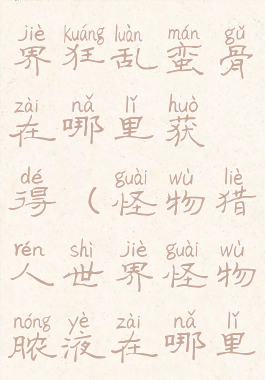 jiè kuáng luàn mán gǔ
界狂乱蛮骨
zài nǎ lǐ huò
在哪里获
dé guài wù liè
得（怪物猎
rén shì jiè guài wù
人世界怪物
nóng yè zài nǎ lǐ
脓液在哪里